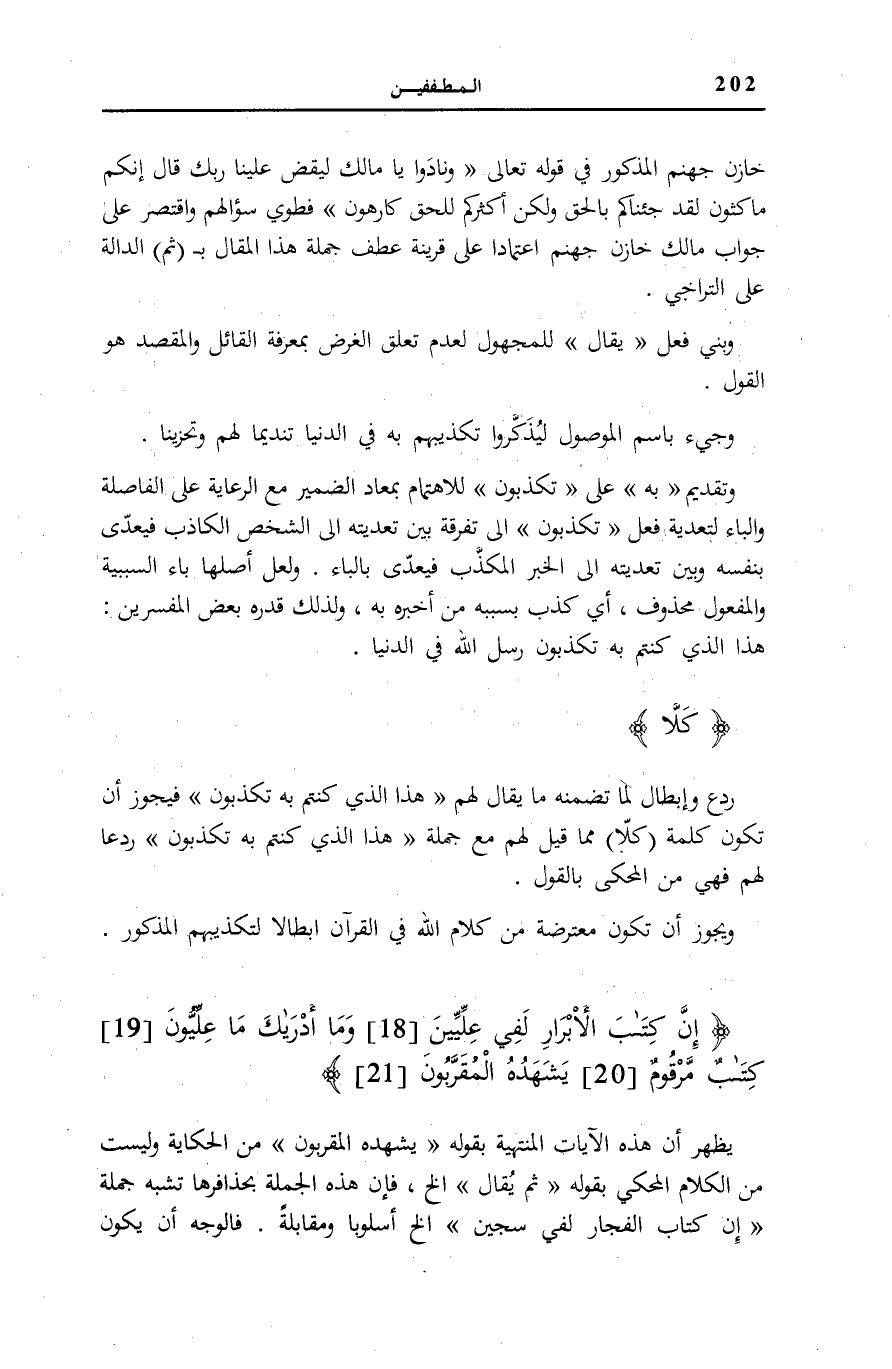 202
المطففين
خازن جهنم المذكور في قوله تعالى « ونادَوا يا مالك ليقض علينا ربك قال إنكم
ماكثون لقد جئناكم بالحق ولكن أكثركم للحق كارهون » فطوي سؤالهم واقتصر على
جواب مالك خازن جهنم اعتمادا على قرينة عطف جملة هذا المقال بـ (ثم) الدالة
على التراخي .
وبني فعل « يقال » للمجهول لعدم تعلق الغرض بمعرفة القائل والمقصد هو
القول .
وجيء باسم الموصول ليُذَكَّروا تكذيبهم به في الدنيا تنديما لهم وتحزينا .
وتقديم « به » على « تكذبون » للاهتمام بمعاد الضمير مع الرعاية على الفاصلة
والباء لتعدية فعل « تكذبون » الى تفرقة بين تعديته الى الشخص الكاذب فيعدّى
بنفسه وبين تعديته الى الخبر المكذَّب فيعدّى بالباء . ولعل أصلها باء السببية
والمفعول محذوف ، أي كذب بسببه من أخبره به ، ولذلك قدره بعض المفسرين :
هذا الذي كنتم به تكذبون رسل الله في الدنيا .
﴿ كَلَّا ﴾
ردع وإبطال لما تضمنه ما يقال لهم « هذا الذي كنتم به تكذبون » فيجوز أن
تكون كلمة (كلّا) مما قيل لهم مع جملة « هذا الذي كنتم به تكذبون » ردعا
لهم فهي من المحكى بالقول .
ويجوز أن تكون معترضة من كلام الله في القرآن ابطالا لتكذيبهم المذكور .
﴿ إِنَّ كِتَٰبَ الْأَبْرَارِ لَفِي عِلِّيِّينَ [18] وَمَا أَدْرَيٰكَ مَا عِلِّيُّونَ [19]
كِتَٰبٌ مَّرْقُومٌ [20] يَشْهَدُهُ الْمُقَرَّبُونَ [21] ﴾
يظهر أن هذه الآيات المنتهية بقوله « يشهده المقربون » من الحكاية وليست
من الكلام المحكي بقوله « ثم يُقال » الخ ، فإن هذه الجملة بحذافرها تشبه جملة
« إن كتاب الفجار لفي سجين » الخ أسلوبا ومقابلةً . فالوجه أن يكون